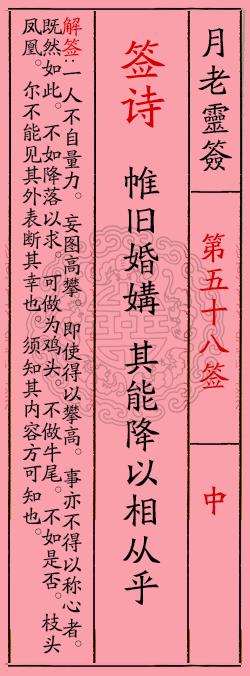 月老靈簽
第五十八签
中
签诗
帷旧婚媾 其能降以相从乎
解签:一人不自量力。妄图高攀。即使得以攀高。事亦不得以称心者。
既然如此。不如降落以求。可做为鸡头。不做牛尾。不如是否。枝头
凤凰。尔不能见其外表断其幸也。须知其内容方可知也。